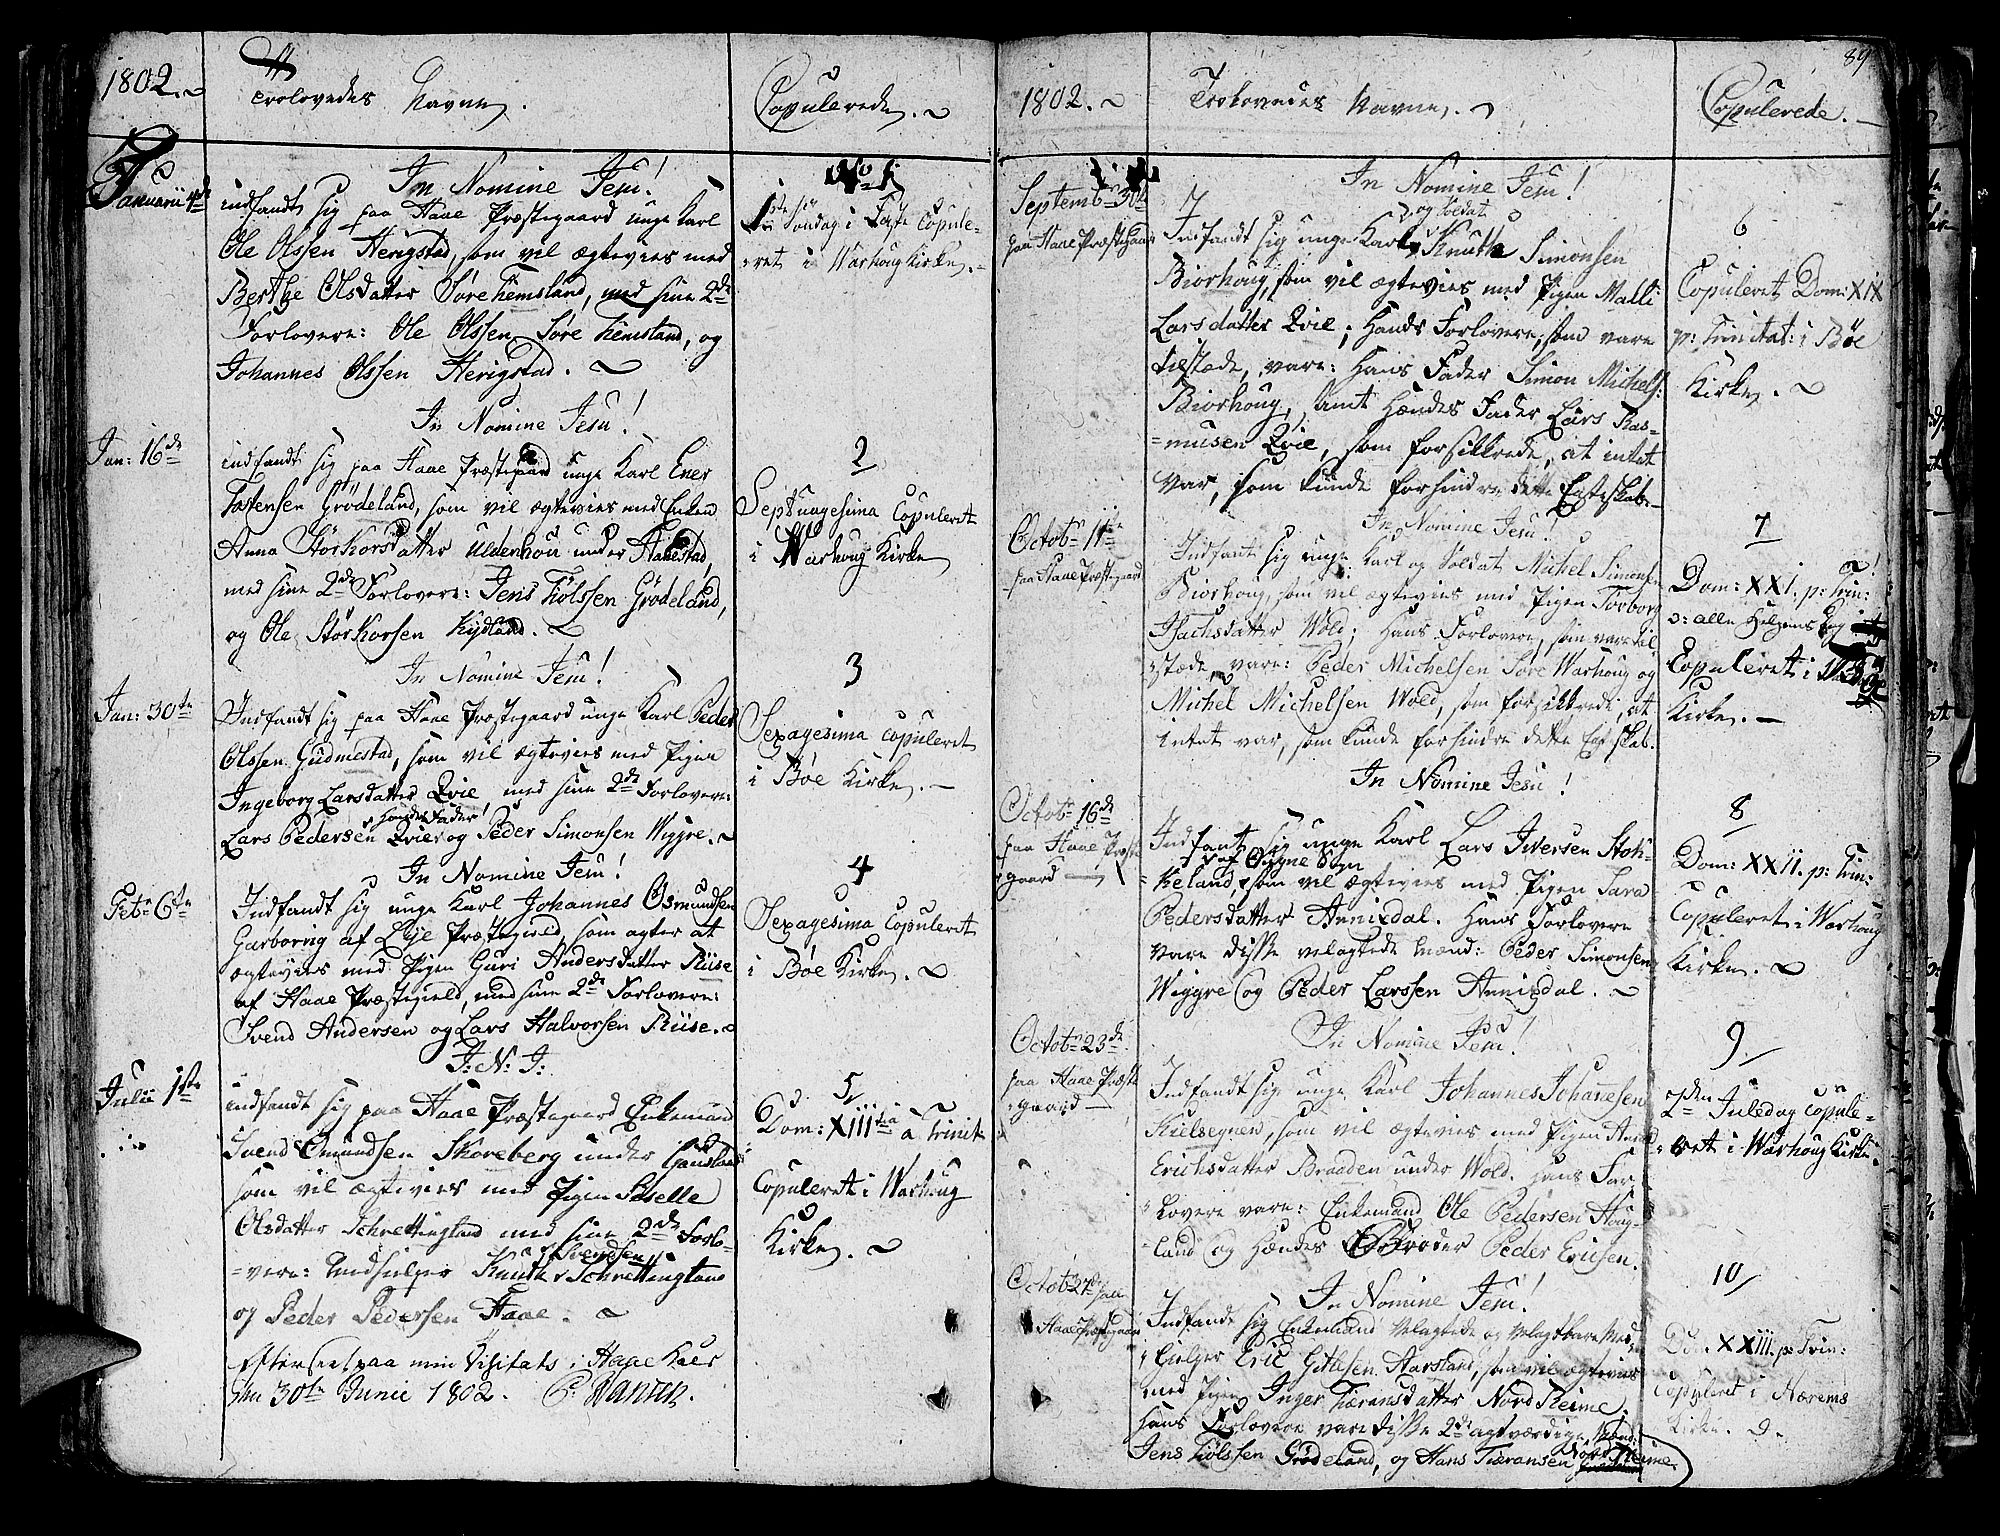 1802.
Trolovedes Navne.
Copulerede.
Januarii 4de
In Nomine Jesu!
indfandt sig paa Haae Præstegaard unge Karl
Ole Olssen Herigstad, som vil ægtevies med
Berthe Olsdatter Søre Tiemsland, med sine 2de
Forlovere: Ole Olssen Søre Tiemsland, og
Johannes Olssen Herigstad.
No 1
1ste Søndag i Faste Copule-
ret i Warhoug Kirke.
Jan: 16de
In Nomine Jesu!
indfandt sig paa Haae Præstegaard unge Karl Ener
Tostensen Grødeland, som vil ægtevies med Enken
Anna Størkorsdatter Uldenhou under Haaestad,
med sine 2de Forlovere: Jens Tiølssen Grødeland,
og Ole Størkorsen Kydland.
2
Septuagesima Copuleret
i Warhoug Kirke
Jan: 30te
In Nomine Jesu!
Indfandt sig paa Haae Præstegaard unge Karl Peder
Olssen Gudmestad, som vil ægtevies med Pigen
Ingeborg Larsdatter Qvie med sine 2de Forlovere:
Hendes Fader
Lars Pedersen Qvie og Peder Simonsen Wiggre.
3
Sexagesima copuleret
i Bøe Kirke.
Feb: 6te
In Nomine Jesu!
Indfandt sig unge Karl Johannes Osmundsen
Garborrig af Lye Præstegield, som agter at
ægtevies med Pigen Guri Andersdatter Riise
af Haae Præstegield, med sine 2de Forlovere:
Svend Andersen og Lars Halvorsen Riise.
4
Sexagesima Copuleret
i Bøe Kirke.
Julii 1ste
J: N: J:
indfandt sig paa Haae Præstegaard Enkemand
Svend Omundsen Skoreberg under
som vil ægtevies med Pigen Siselle
Olsdatter Schrettingland med sine 2de Forlo-
Svendsen
-vere: Medhielper Knuth Schrettingland
og Peder Pedersen Haae.
5
Dom: XIIItia à Trinit:
Copuleret i Warhoug
Kirke.
Efterseet paa min Visitats i Haae
den 30te Junii 1802. P. Hansen.
89
1802.
Trolovedes Navne.
Copulerede.
Septemb: 30te
paa Haae Præstegaard
In Nomine Jesu!
og Soldat
Indfandt sig unge Karl Knuth Simonsen
Biorhoug, som vil ægtevies med Pigen Malli
Larsdatter Qvie; Hands Forlovere, som vare
tilstæde, vare: Hans Fader Simon Michels:
Biorhoug, samt Hændes Fader Lars Ras-
=musen Qvie, som forsikkrede, at intet
var, som kunde forhindre dette Egteskab.
6
Copuleret Dom: XIX
p: Trinitat: i Bøe
Kirke.
Octob: 11te
paa Haae Præstegaard
In Nomine Jesu!
Indfant sig unge Karl og Soldat Michel Simonsen
Biorhoug, som vil ægtevies med Pigen Torborg
Isachsdatter Wold; Hans Forlovere, som vare til
stæde, vare: Peder Michelsen Søre Warhoug og
Michel Michelsen Wold, som forsikkrede, at
intet var, som kunde forhindre dette Egteskab.
7
Dom: XXI. p: Trin:
ɔ: alle Helgens Dag
Copuleret i
Kirke.
Octob: 16de
paa Haae Præste
gaard
In Nomine Jesu!
Indfant sig unge Karl Lars Iversen Stok-
af Ogne Sogn
=keland, som vil ægtevies med Pigen Sara
Pedersdatter Annixdal. Hans Forlovere
vare disse velagtede Mænd: Peder Simonsen
Wiggre og Peder Larssen Annixdal.
8
Dom: XXII. p: Trin:
Copuleret i Warhoug
Kirke.
Octob: 23de
paa Haae Præste
gaard
In Nomine Jesu!
Indfandt sig unge Karl Johannes Johanesen
Kielsegnen, som vil ægtevies med Pigen Anna
Erichsdatter Braaden under Wold. Hans For-
lovere vare: Enkemand Ole Pedersen Houg-
land og Hændes Broder Peder Ericsen.
9
2den Juledag copule-
ret i Warhoug Kirke.
Octob: 27de paa
Haae Præstegaard
In Nomine Jesu!
Indfandt sig Enkemand Velagtede og Velagtbare Med-
hielper Eric Gitlesen Aarsland, som vil ægtevies
med Pigen Inger Tieransdatter Nord Reime.
Hans Forlovere vare disse 2de agtværdige Mænd:
Jens Tiølssen Grødeland, og Hans Tieransen Nord Reime.
10
Dom XXIII. p: Trin:
Copuleret i Nærems
Kirke.